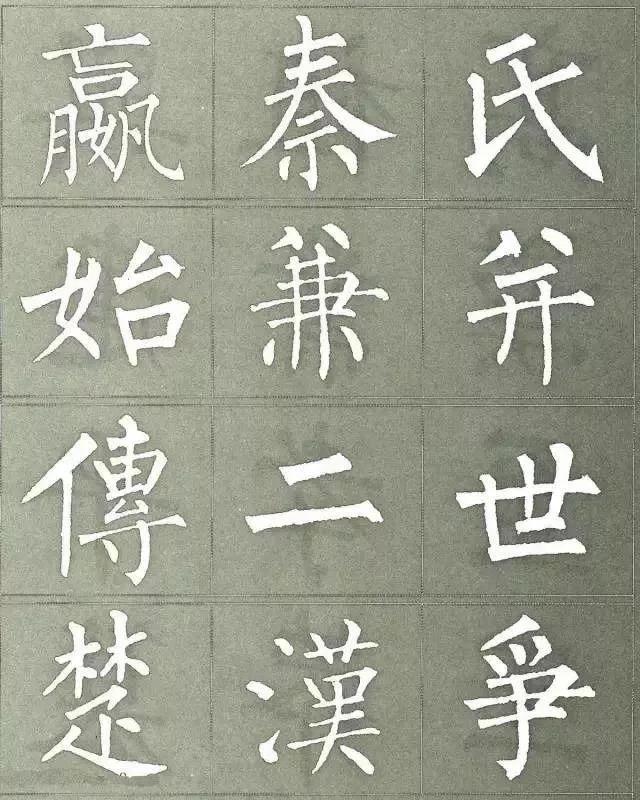 嬴秦氏
始兼并
傳二世
楚漢爭